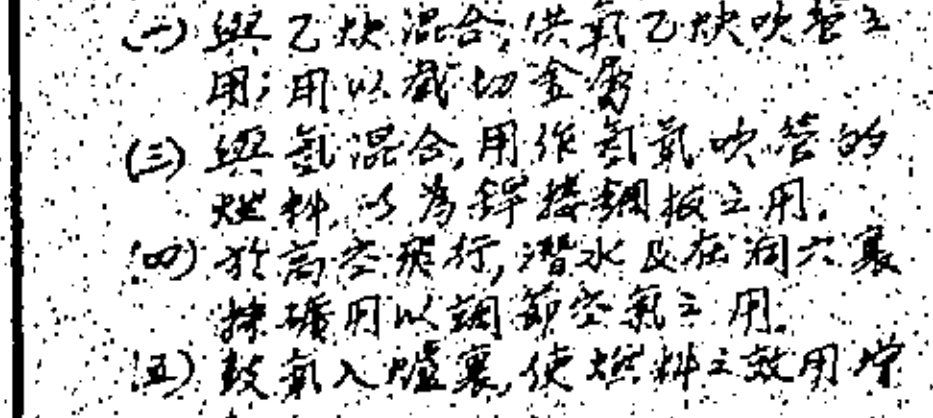 (二)與乙炔混合,供氧乙炔吹管之
用;用以截切金屬
(三)與氫混合,用作氫氧吹管的
燃料,以為銲接鋼板之用.
(四)於高空飛行,潛水及在洞穴裏
採礦用以調節空氣之用.
(五)鼓氧入爐裏,使燃料之效用增